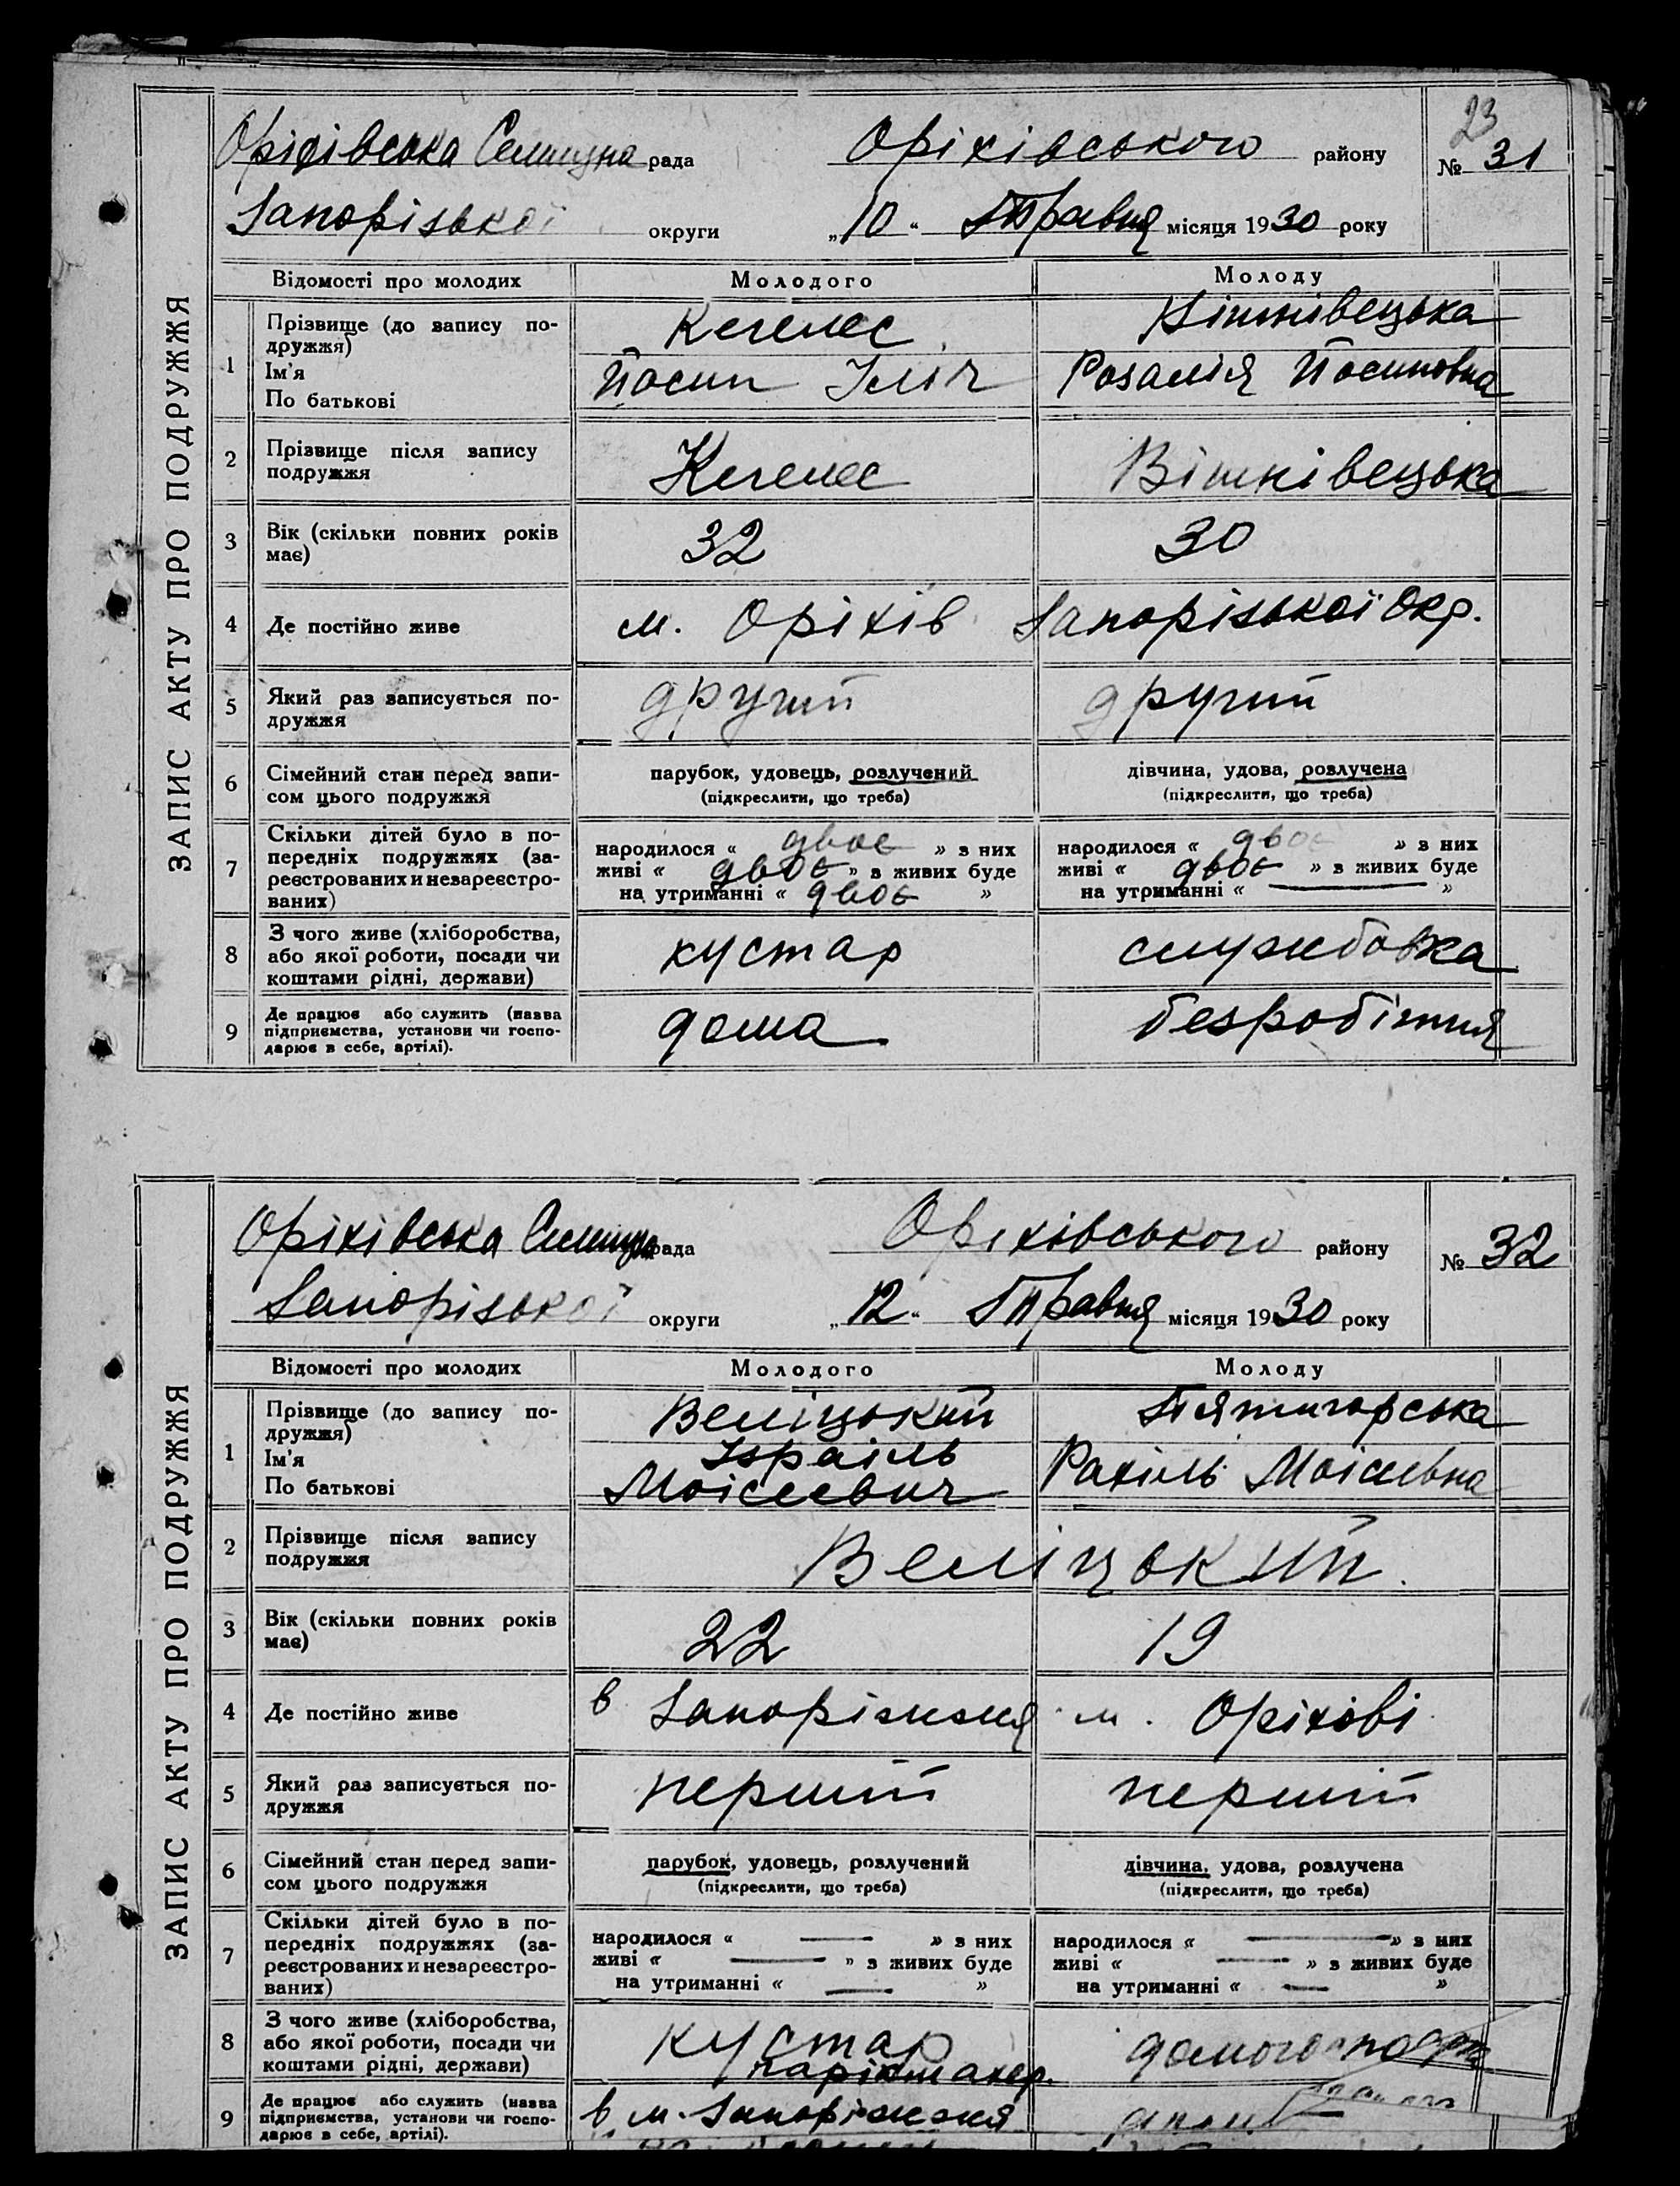 23
Оріхівська Селищна рада Оріхівського району № 31
Запорізької округи „10“ Травня місяця 1930 року
ЗАПИС АКТУ ПРО ПОДРУЖЖЯ
Відомості про молодих Молодого Молоду
1 Прізвище (до запису по-
дружжя)
Ім'я
По батькові
Кегелес
Йосип Ілїч
Вішнівецька
Розалія Йосиповна
2 Прізвище після запису
подружжя
Кегелес Вішнівецька
3 Вік (скільки повних років
має)
32 30
4 Де постійно живе м. Оріхів Запорізької Окр.
5 Який раз записується по-
дружжя
другий другий
6 Сімейний стан перед запи-
сом цього подружжя
парубок, удовець, розлучений
(підкреслити, що треба)
дівчина, удова, розлучена
(підкреслити, що треба)
7 Скільки дітей було в по-
передніх подружжях (за-
реєстрованих и незареєстро-
ваних)
народилося « двоє » з них
живі « двоє » з живих буде
на утриманні « двоє »
народилося « двоє » з них
живі « двоє » з живих буде
на утриманні « — »
8 З чого живе (хліборобства,
або якої роботи, посади чи
коштами рідні, держави)
кустар службовка
9 Де працює або служить (назва
підприємства, установи чи госпо-
дарює в себе, артілі).
дома безробітня
Оріхівська Селищна рада Оріхівського району № 32
Запорізької округи „12“ Травня місяця 1930 року
ЗАПИС АКТУ ПРО ПОДРУЖЖЯ
Відомості про молодих Молодого Молоду
1 Прізвище (до запису по-
дружжя)
Ім'я
По батькові
Веліцький
Ізраіль
Моісеевич
Пятигорська
Рахіль Моісеевна
2 Прізвище після запису
подружжя
Веліцький.
3 Вік (скільки повних років
має)
22 19
4 Де постійно живе в Запоріжжя м. Оріхові
5 Який раз записується по-
дружжя
перший перший
6 Сімейний стан перед запи-
сом цього подружжя
парубок, удовець, розлучений
(підкреслити, що треба)
дівчина, удова, розлучена
(підкреслити, що треба)
7 Скільки дітей було в по-
передніх подружжях (за-
реєстрованих и незареєстро-
ваних)
народилося « — » з них
живі « — » з живих буде
на утриманні « — »
народилося « — » з них
живі « — » з живих буде
на утриманні « — »
8 З чого живе (хліборобства,
або якої роботи, посади чи
коштами рідні, держави)
кустар
парікмахер.
9 Де працює або служить (назва
підприємства, установи чи госпо-
дарює в себе, артілі).
в м. Запоріжжя